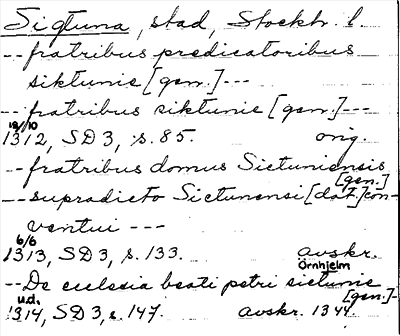 Sigtuna, stad, Stockh. l.
-- fratribus predicatoribus
siktunie [gen.] ---
-- fratribus siktunie [gen.] ---
19/10
1312, SD3, s. 85. orig.
-- fratribus domus Sictuniensis
[gen.]
-- supradicto Sictunensi [dat.] con-
ventui ---
6/6
1313, SD3, s. 133. avskr.
Örnhjelm
-- De ecclesia beati petri sictunie
[gen.] -
u.d.
1314, SD3, s. 147. avskr. 1344.